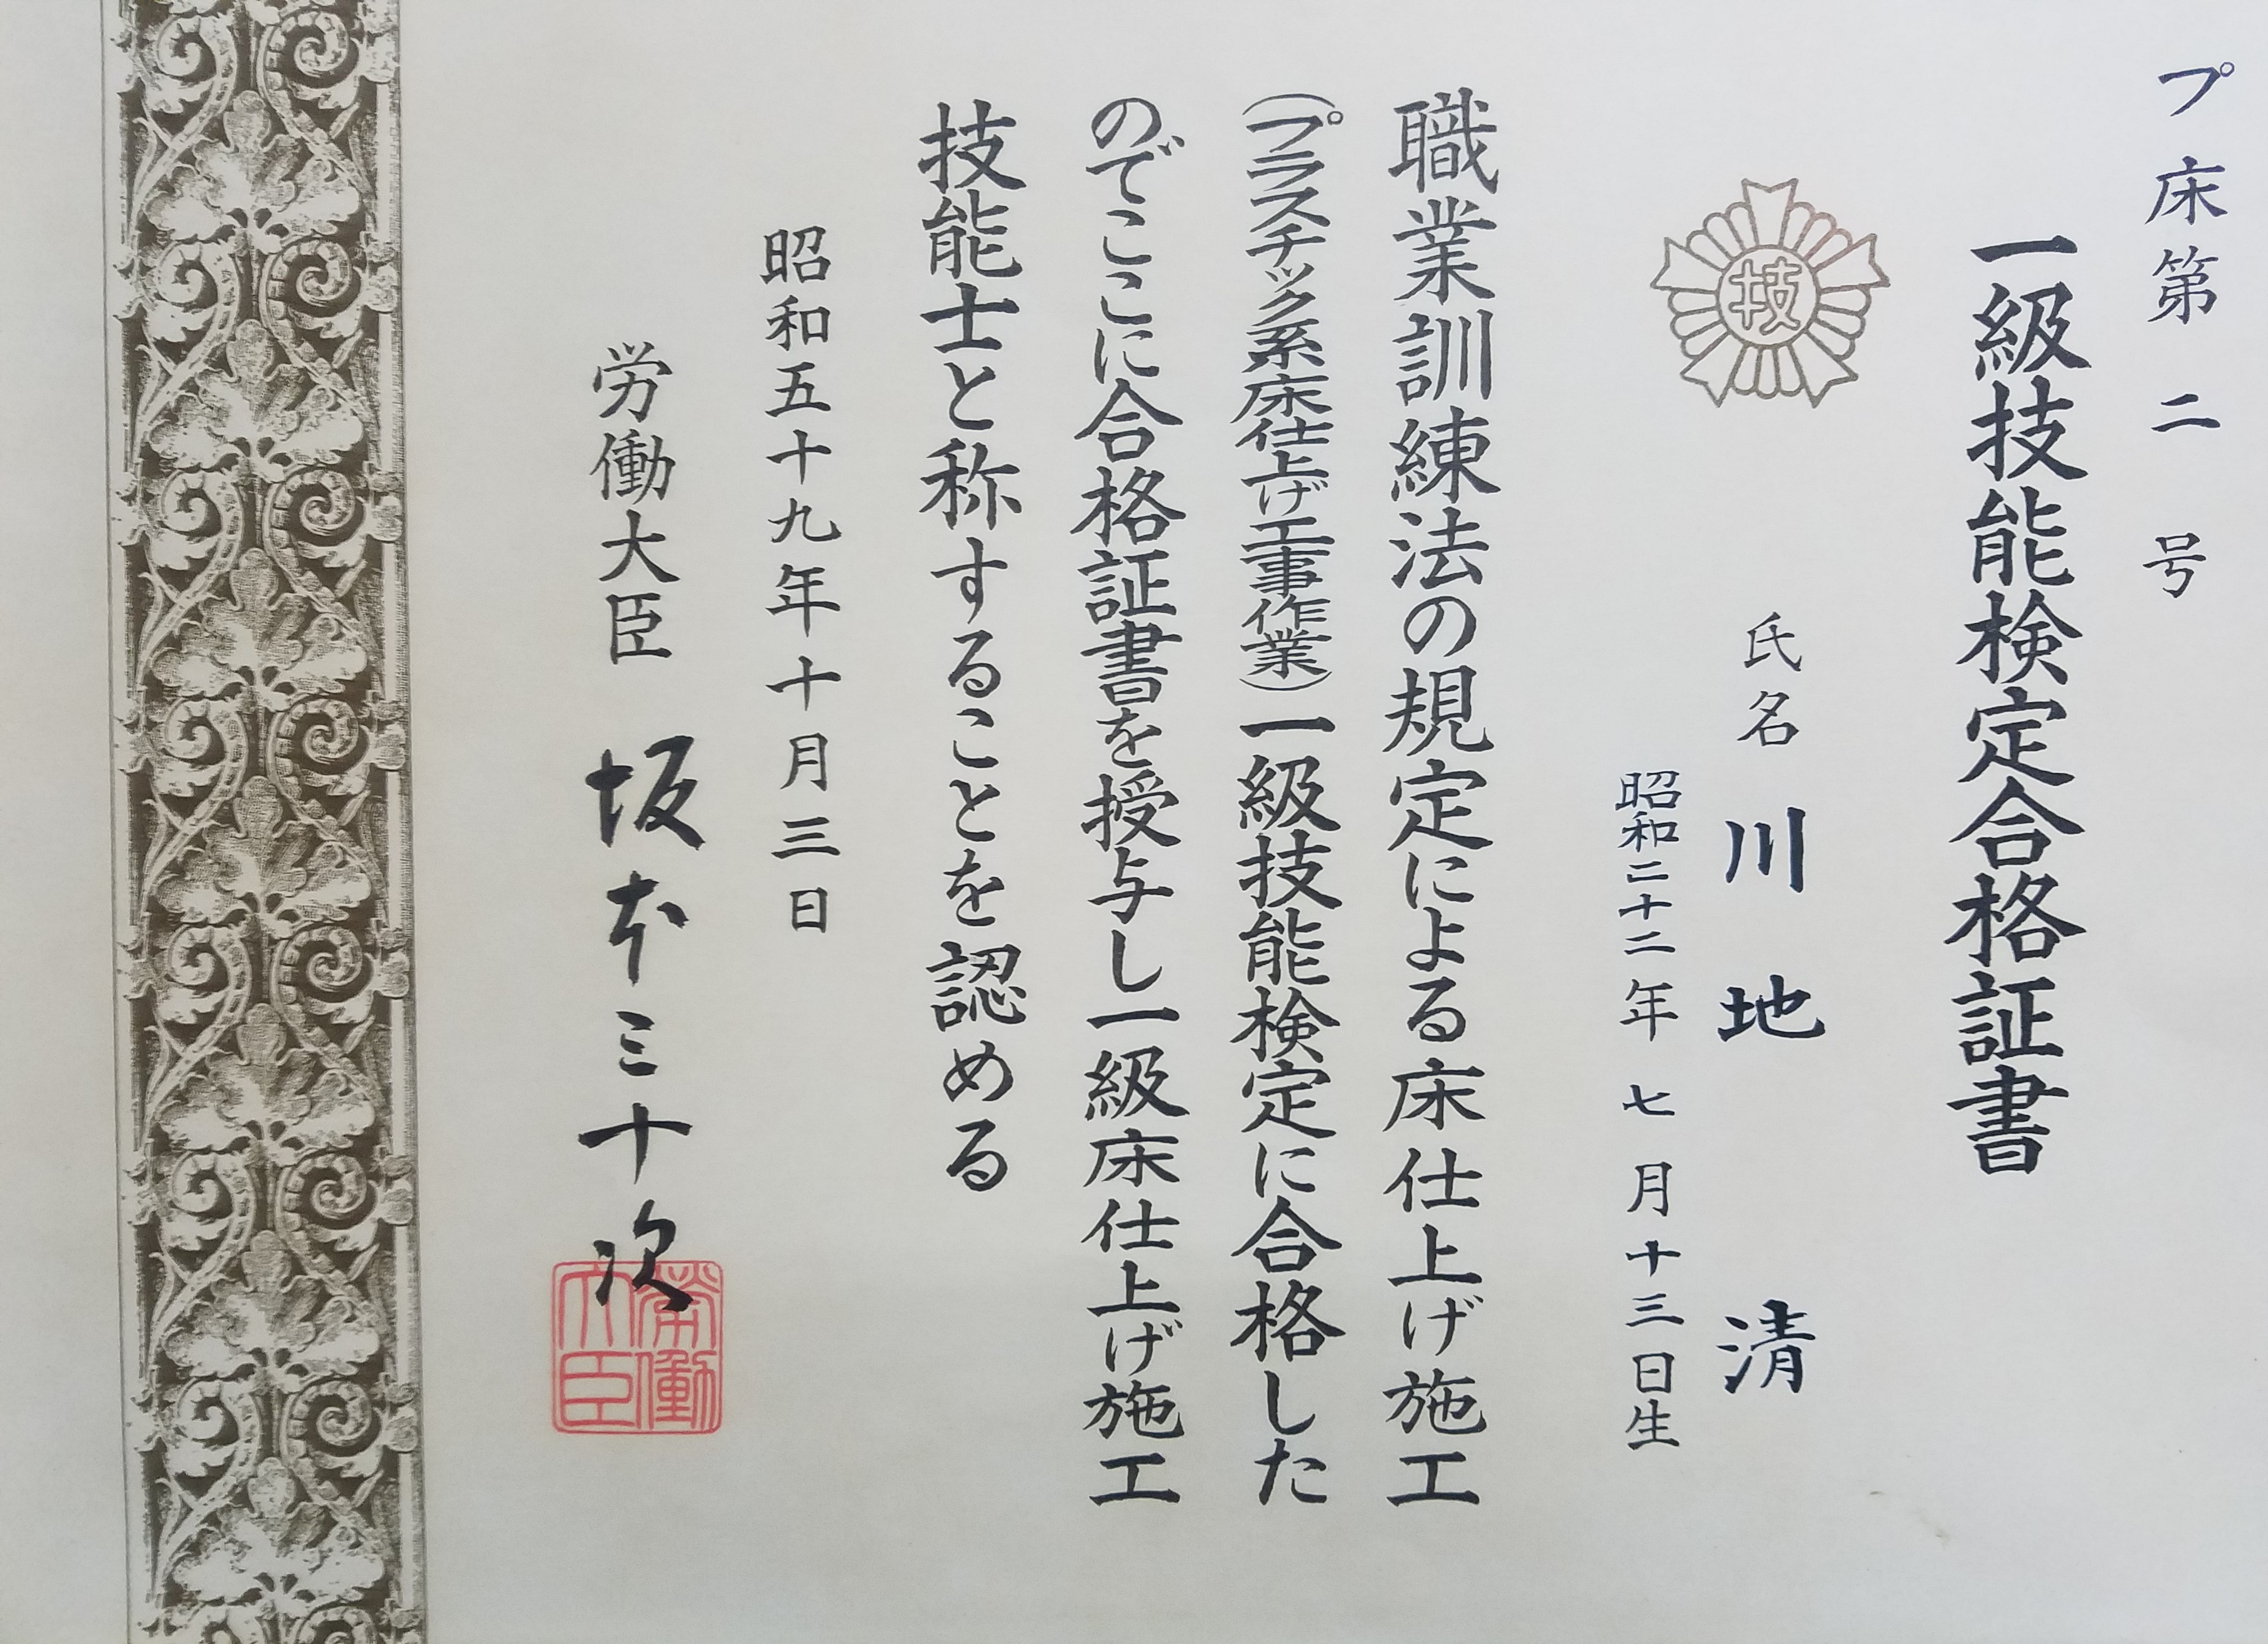 プ床第二号
一級技能検定合格証書
技
氏名 川地 清
昭和二十二年七月十三日生
職業訓練法の規定による床仕上げ施工
(プラスチック系床仕上げ工事作業)一級技能検定に合格した
のでここに合格証書を授与し一級床仕上げ施工
技能士と称することを認める
昭和五十九年十月三日
労働大臣 坂本三十次
労働大臣